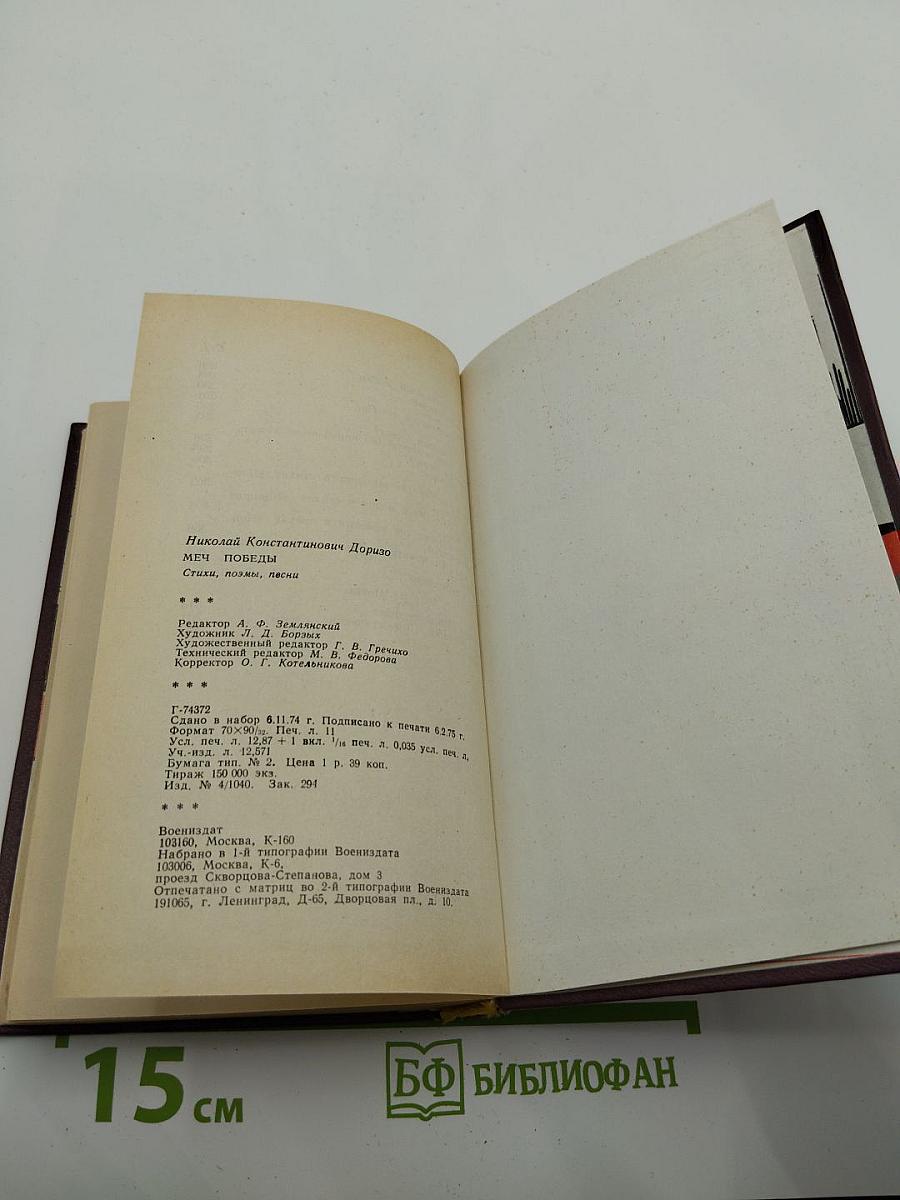 Николай Константинович Доризо
МЕЧ ПОБЕДЫ
Стихи, поэмы, песни
* * *
Редактор А. Ф. Землянский
Художник Л. Д. Борзых
Художественный редактор Г. В. Гречихо
Технический редактор М. В. Федорова
Корректор О. Г. Котельникова
* * *
Г-74372
Сдано в набор 6.11.74 г. Подписано к печати 6.2.75 г.
Формат 70×90/32. Печ. л. 11
Усл. печ. л. 12,87 + 1 вкл. 1/16 печ. л. 0,035 усл. печ. л.
Уч.-изд. л. 12,571
Бумага тип. № 2. Цена 1 р. 39 коп.
Тираж 150 000 экз.
Изд. № 4/1040. Зак. 294
* * *
Воениздат
103160, Москва, К-160
Набрано в 1-й типографии Воениздата
103006, Москва, К-6,
проезд Скворцова-Степанова, дом 3
Отпечатано с матриц во 2-й типографии Воениздата
191065, г. Ленинград, Д-65, Дворцовая пл., д. 10.
15 см
БФ БИБЛИОФАН